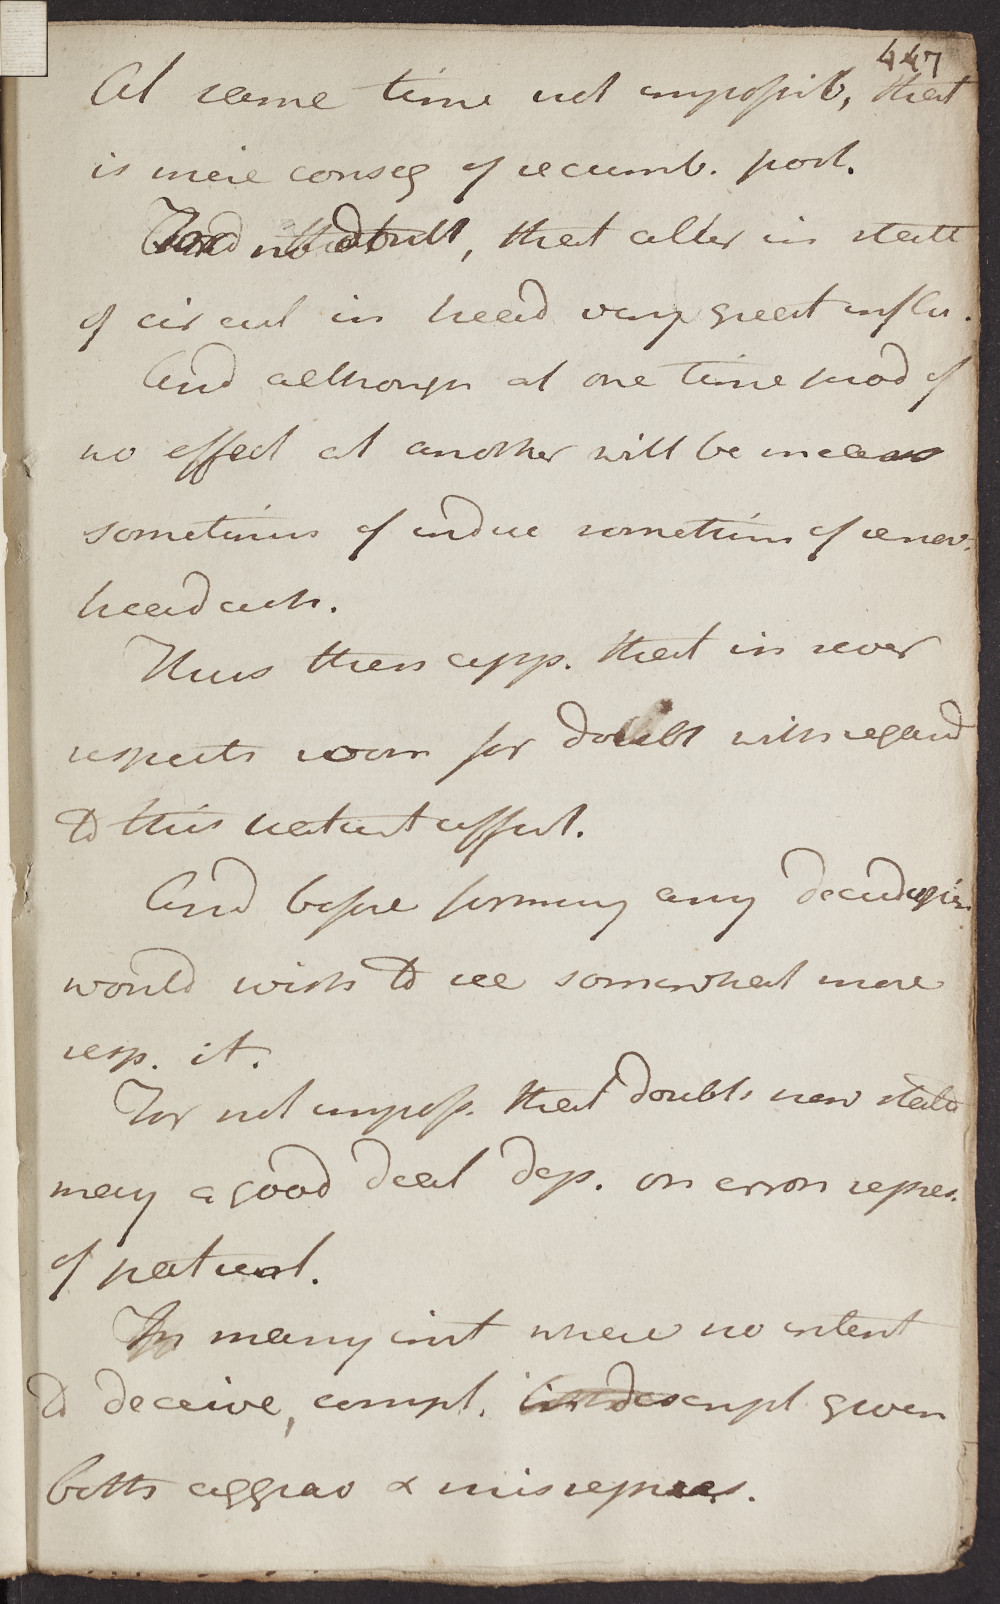 447
At same time not impossib, that
is meie conseq of recumb. post.
no doubt, that alter in state
of circul in head very great influ.
And although at one time prod of
no effect at another will be means
sometimes of induc sometims of remov.
headach.
Thus then app. that in sever
respects room for doubt with regard
to this patient affect.
And before forming any decid opin.
would wish to see somewhat more
resp. it.
For not imposs. that doubts now stated
may a good deal dep. on erron repres.
of patient.
In many inst where no intent
to deceive, compl. descript given
both aggrav & misrepres.